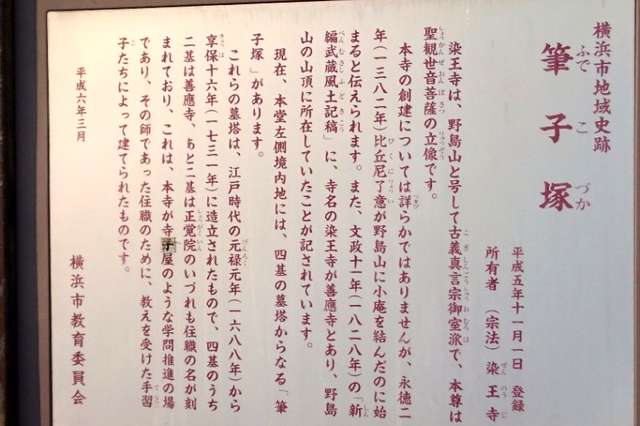 横浜市地域史跡
筆子塚
ふでこづか
平成五年十一月一日 登録
所有者 (宗法) 染王寺
ぜんのうじ
染王寺は、野島山と号して古義真言宗御室派で、本尊は
こぎしんごんしゅうおむろは
聖観世音菩薩の立像です。
しょうかんぜおんぼさつ りゅうぞう
本寺の創建については詳らかではありませんが、永徳二
つまび
年(一三八二年)比丘尼了意が野島山に小庵を結んだのに始
びくにりょうい
まると伝えられます。また、文政十一年(一八二八年)の「新
しん
編武蔵風土記稿」に、寺名の染王寺が善應寺とあり、野島
ぺんむさしふどきこう
山の山頂に所在していたことが記されています。
現在、本堂左側境内地には、四基の墓塔からなる「筆
子塚」があります。
これらの墓塔は、江戸時代の元禄元年(一六八八年)から
げんろく
享保十六年(一七三一年)に造立されたもので、四基のうち
きょうほ
二基は善應寺、もと二基は正覚院のいづれも住職の名が刻
しょうがくいん
まれており、これは、本寺が寺子屋のような学問推進の場
であり、その師であった住職のために、教えを受けた手習
てなら
子たちによって建てられたものです。
平成六年三月
横浜市教育委員会